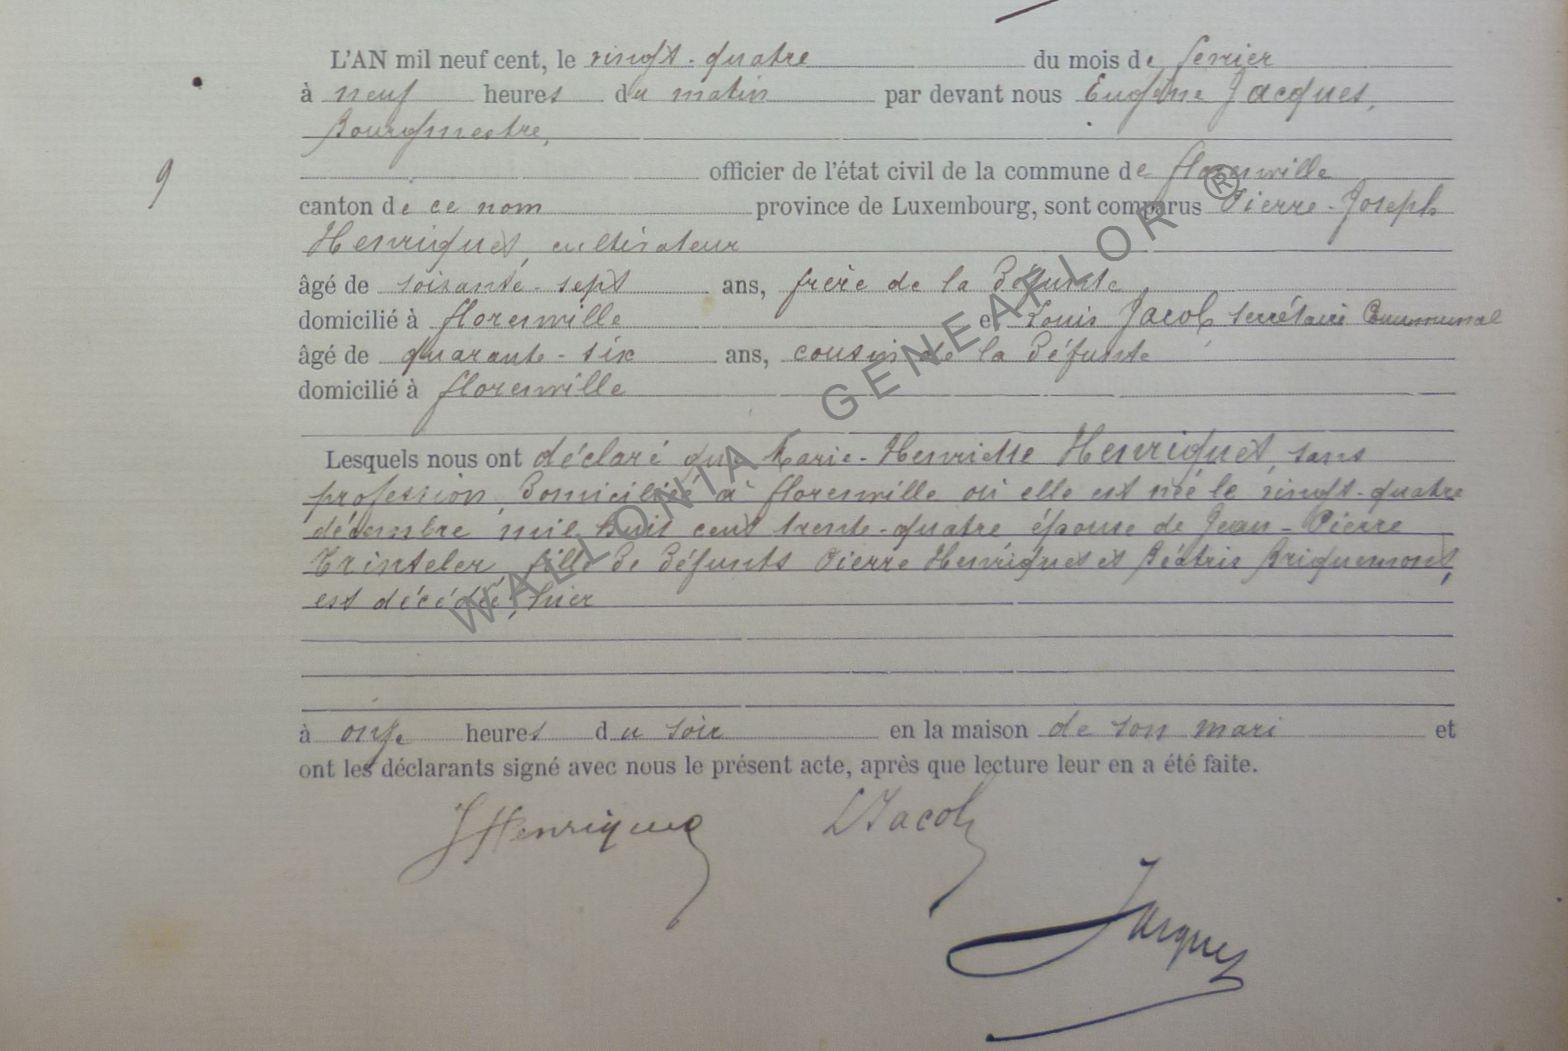 L'AN mil neuf cent, le vingt-quatre du mois de fevrier
à neuf heures du matin par devant nous Eugène Jacques,
Bourgmestre,
officier de l'état civil de la commune de florenville
9
canton de ce nom province de Luxembourg, sont comparus Pierre-Joseph
Henriquet, cultivateur
âgé de soixante-sept ans, frère de la défunte
domicilié à florenville et Louis Jacob, secrétaire Communal
âgé de quarante-six ans, cousin de la défunte
domicilié à florenville
Lesquels nous ont déclaré que Marie-Henriette Henriquet, sans
profession, domiciliée à florenville où elle est née le vingt-quatre
décembre mil huit cent trente-quatre, épouse de Jean-Pierre
Trinteler, fille de défunts Pierre Henriquet et Béatrix Briquemont,
est décédée, hier
à onze heures du soir en la maison de son mari et
ont les déclarants signé avec nous le présent acte, après que lecture leur en a été faite.
JHenriquet LJacob
Jacques
WALLONIA - GENEAFLOR ®